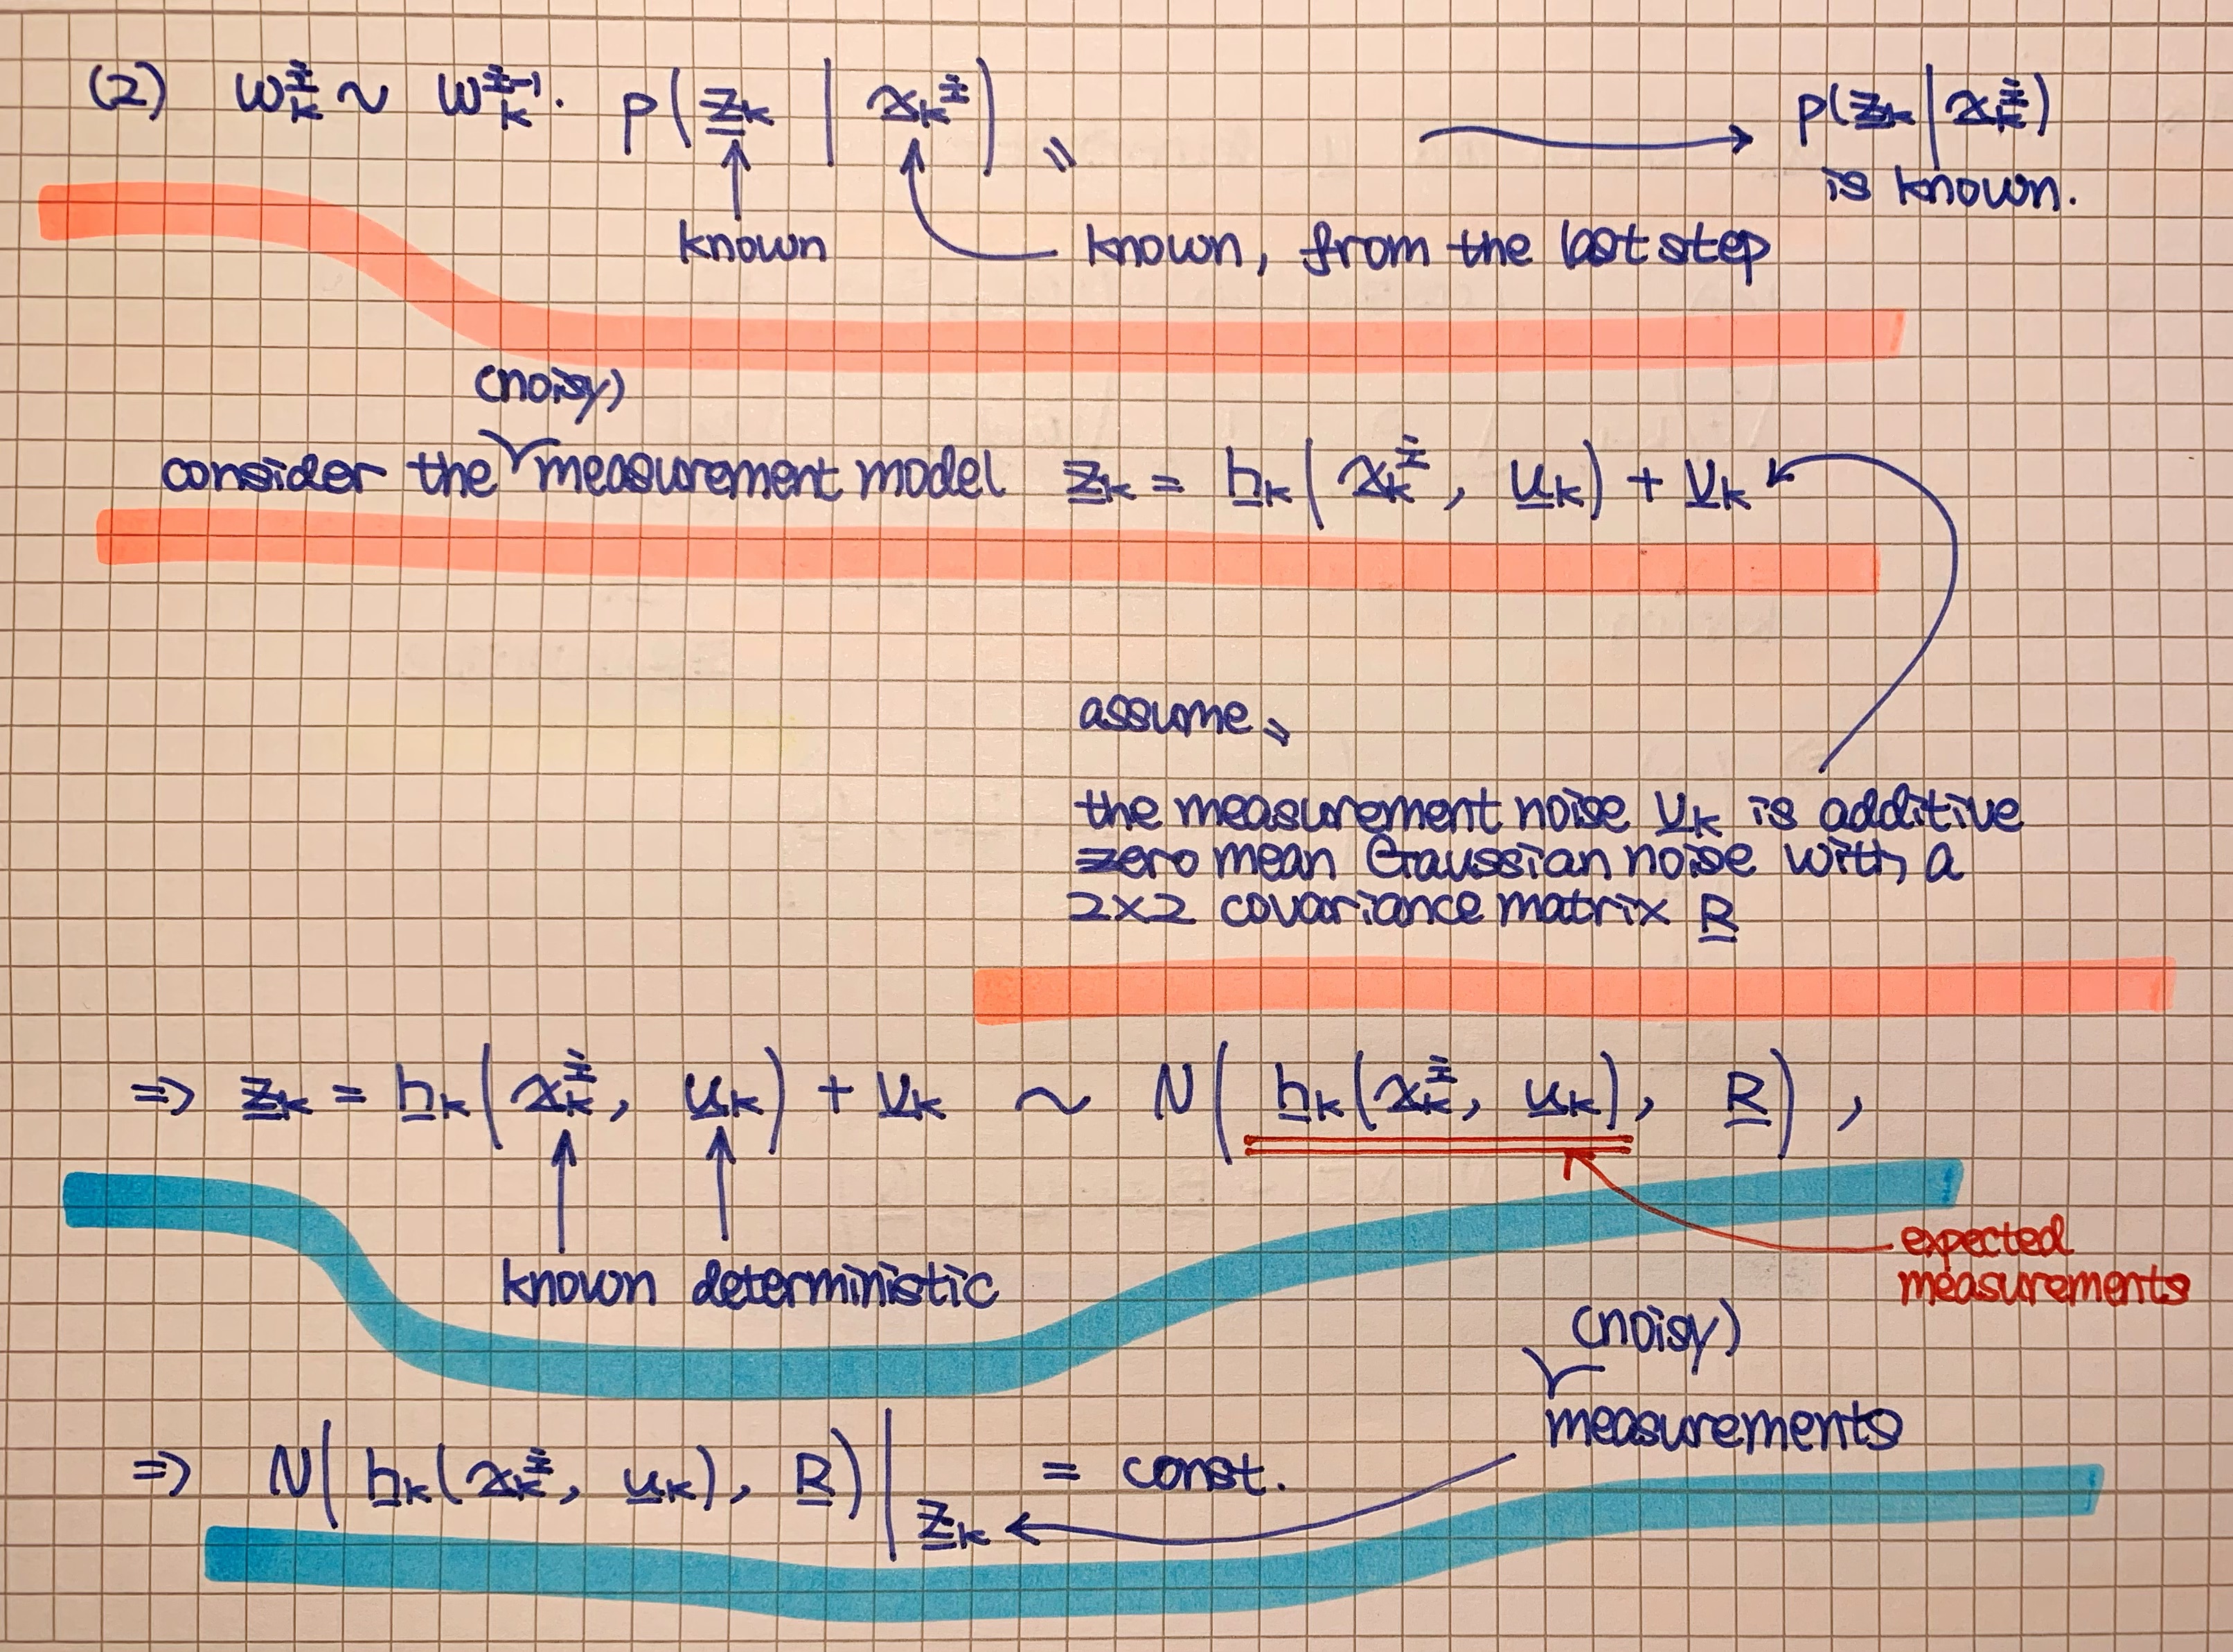 (2) w_k^i ~ w_k^{i-1} · p( z_k | x_k^i )
p(z_k | x_k^i)
is known.
known
known, from the last step
(noisy)
consider the measurement model z_k = h_k( x_k^i , u_k) + v_k
assume,
the measurement noise v_k is additive
zero mean Gaussian noise with a
2×2 covariance matrix R
⇒ z_k = h_k( x_k^i , u_k) + v_k ~ N( h_k(x_k^i , u_k), R) ,
known deterministic
expected
measurements
(noisy)
measurements
⇒ N( h_k(x_k^i , u_k), R) | z_k = const.